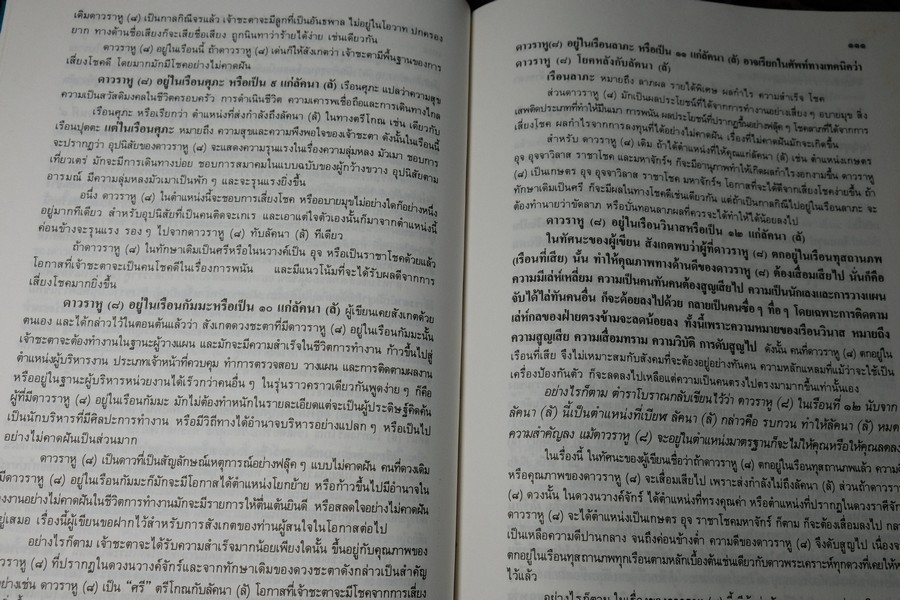 เดิมดาวราหู (๘) เป็นกาลกิณีจรแล้ว เจ้าชะตาจะมีลูกที่เป็นอันธพาล ไม่อยู่ในโอวาท ปกครอง
ยาก ทางด้านชื่อเสียงก็จะเสียชื่อเสียง ถูกนินทาว่าร้ายได้ง่าย เช่นเดียวกัน
ดาวราหู (๘) อยู่ในเรือนนี้ ถ้าดาวราหู (๘) เด่นก็ให้สังเกตว่า เจ้าชะตามีพื้นฐานของการ
เสี่ยงโชคดี โดยมากมักมีโชคอย่างไม่คาดฝัน
ดาวราหู (๘) อยู่ในเรือนศุภะ หรือเป็น ๙ แก่ลัคนา (ลั) เรือนศุภะ แปลว่าความสุข
ความเป็นสวัสดิมงคลในชีวิตครอบครัว การดำเนินชีวิต ความเคารพเชื่อถือและการเดินทางไกล
เรือนศุภะ หรือเรียกว่า ตำแหน่งที่ส่งกำลังถึงลัคนา (ลั) ในทางตรีโกณ เช่น เดียวกับ
เรือนปุตตะ แต่ในเรือนศุภะ หมายถึง ความสุขและความพึงพอใจของเจ้าชะตา ดังนั้นในเรือนนี้
จะปรากฏว่า อุปนิสัยของดาวราหู (๘) จะแสดงความรุนแรงในเรื่องความลุ่มหลง มัวเมา ชอบการ
เที่ยวเตร่ มักจะมีการเดินทางบ่อย ชอบการสมาคมในแบบฉบับของผู้กว้างขวาง อุปนิสัยตาม
อารมณ์ มีความลุ่มหลงมัวเมาเป็นพัก ๆ และจะรุนแรงยิ่งขึ้น
อนึ่ง ดาวราหู (๘) ในตำแหน่งนี้จะชอบการเสี่ยงโชค หรืออบายมุขไม่อย่างใดก็อย่างหนึ่ง
อยู่มากทีเดียว สำหรับอุปนิสัยที่เป็นคนติดจะเกเร และเอาแต่ใจตัวเองนั้นก็มาจากตำแหน่งนี้
ค่อนข้างจะรุนแรง รอง ๆ ไปจากดาวราหู (๘) ทับลัคนา (ลั) ทีเดียว
ถ้าดาวราหู (๘) ในทักษาเดิมเป็นศรีหรือในนวางค์เป็น อุจ หรือเป็นราชาโชคด้วยแล้ว
โอกาสที่เจ้าชะตาจะเป็นคนโชคดีในเรื่องการพนัน และมีแนวโน้มที่จะได้รับผลดีจากการ
เสี่ยงโชคมากยิ่งขึ้น
ดาวราหู (๘) อยู่ในเรือนกัมมะหรือเป็น ๑๐ แก่ลัคนา (ลั) ผู้เขียนเคยสังเกตด้วย
ตนเอง และได้กล่าวไว้ในตอนต้นแล้วว่า สังเกตดวงชะตาที่มีดาวราหู (๘) อยู่ในเรือนกัมมะนั้น
เจ้าชะตาจะต้องทำงานในฐานะผู้วางแผน และมักจะมีความสำเร็จในชีวิตการทำงาน ก้าวขึ้นไปสู่
ตำแหน่งผู้บริหารงาน ประเภทเจ้าหน้าที่ควบคุม ทำการตรวจสอบ วางแผน และการติดตามผลงาน
หรืออยู่ในฐานะผู้บริหารหน่วยงานได้เร็วกว่าคนอื่น ๆ ในรุ่นราวคราวเดียวกันพูดง่าย ๆ ก็คือ
ผู้ที่มีดาวราหู (๘) อยู่ในเรือนกัมมะ มักไม่ต้องทำหนักในรายละเอียดแต่จะเป็นผู้ประดิษฐ์คิดค้น
เป็นนักบริหารที่มีศิลปะการทำงาน หรือมีวิถีทางได้อำนาจบริหารอย่างแปลก ๆ หรือเป็นไป
อย่างไม่คาดฝันเป็นส่วนมาก
ดาวราหู (๘) เป็นดาวที่เป็นสัญลักษณ์เหตุการณ์อย่างฟลุ๊ค ๆ แบบไม่คาดฝัน คนที่ดวงเดิม
มีดาวราหู (๘) อยู่ในเรือนกัมมะก็มักจะมีโอกาสได้ตำแหน่งโยกย้าย หรือก้าวขึ้นไปมีอำนาจใน
งานอย่างไม่คาดฝันในชีวิตการทำงานมักจะมีรายการให้ตื่นเต้นยินดี หรือสลดใจอย่างไม่คาดฝัน
อยู่เสมอ เรื่องนี้ผู้เขียนขอฝากไว้สำหรับการสังเกตของท่านผู้สนใจในโอกาสต่อไป
อย่างไรก็ตาม เจ้าชะตาจะได้รับความสำเร็จมากน้อยเพียงใดนั้น ขึ้นอยู่กับคุณภาพของ
ดาวราหู (๘) ที่ปรากฏในดวงนวางค์จักร์และจากทักษาเดิมของดวงชะตาดังกล่าวเป็นสำคัญ
อย่างเช่น ดาวราหู (๘) เป็น "ศรี" ตรีโกณกับลัคนา (ลั) โอกาสที่เจ้าชะตาจะมีโชคจากการเสี่ยง
๑๑๑
ดาวราหู(๘) อยู่ในเรือนลาภะ หรือเป็น ๑๑ แก่ลัคนา (ลั) อาจเรียกในศัพท์ทางเทคนิคว่า
ดาวราหู (๘) โยคหลังกับลัคนา (ลั)
เรือนลาภะ หมายถึง ลาภผล รายได้พิเศษ ผลกำไร ความสำเร็จ โชค
ส่วนดาวราหู (๘) มักเป็นผลประโยชน์ที่ได้จากการทำงานอย่างเสี่ยง ๆ อบายมุข สิ่ง
เสพติดประเภทที่ทำให้มึนเมา การพนัน ผลประโยชน์ที่ปรากฏขึ้นอย่างฟลุ๊ค ๆ โชคลาภที่ได้จากการ
เสี่ยงโชค ผลกำไรจากการลงทุนที่ได้อย่างไม่คาดฝัน เรื่องที่ไม่คาดฝันมักจะเกิดขึ้น
สำหรับ ดาวราหู (๘) เดิม ถ้าได้ตำแหน่งที่ให้คุณแก่ลัคนา (ลั) เช่น ตำแหน่งเกษตร
อุจ อุจจาวิลาส ราชาโชค และมหาจักร์ฯ ก็จะมีอานุภาพทำให้เกิดผลกำไรงอกงามขึ้น ดาวราหู
(๘) เป็นเกษตร อุจ อุจจาวิลาส ราชาโชค มหาจักร์ฯ โอกาสที่จะได้ดีจากเสี่ยงโชคง่ายขึ้น ถ้า
ทักษาเดิมเป็นศรี ก็จะมีผลในทางโชคดีเช่นเดียวกัน แต่ถ้าเป็นกาลกิณีไปอยู่ในเรือนลาภะ จะ
ต้องทำนายว่าขัดลาภ หรือบั่นทอนผลที่ควรจะได้ทำให้ได้น้อยลงไป
ดาวราหู (๘) อยู่ในเรือนวินาสหรือเป็น ๑๒ แก่ลัคนา (ลั)
ในทัศนะของผู้เขียน สังเกตพบว่าผู้ที่ดาวราหู (๘) ตกอยู่ในเรือนทุสถานภพ
(เรือนที่เสีย) นั้น ทำให้คุณภาพทางด้านดีของดาวราหู (๘) ต้องเสื่อมเสียไป นั่นก็คือ
ความมีเล่ห์เหลี่ยม ความเป็นคนทันคนต้องสูญเสียไป ความเป็นนักเลงและการวางแผน
จับได้ไล่ทันคนอื่น ก็จะด้อยลงไปด้วย กลายเป็นคนซื่อ ๆ ทื่อ ๆ โดยเฉพาะการติดตาม
เล่ห์กลของฝ่ายตรงข้ามจะลดน้อยลง ทั้งนี้เพราะความหมายของเรือนวินาส หมายถึง
ความสูญเสีย ความเสื่อมทราม ความวิบัติ การดับสูญไป ดังนั้น คนที่ดาวราหู (๘) ตกอยู่ใน
เรือนที่เสีย จึงไม่เหมาะสมกับสังคมที่จะต้องอยู่อย่างทันคน ความหลักแหลมที่แม้ว่าจะใช้เป็น
เครื่องป้องกันตัว ก็จะลดลงไปเหลือแต่ความเป็นคนตรงไปตรงมามากขึ้นเท่านั้นเอง
อย่างไรก็ตาม ตำราโบราณกลับเขียนไว้ว่า ดาวราหู (๘) ในเรือนที่ ๑๒ นับจาก
ลัคนา (ลั) นี้เป็นตำแหน่งที่เบียฬ ลัคนา (ลั) กล่าวคือ รบกวน ทำให้ลัคนา (ลั) หมด
ความสำคัญลง แม้ดาวราหู (๘) จะอยู่ในตำแหน่งมาตรฐานก็จะไม่ให้คุณหรือให้คุณลดลง
ในเรื่องนี้ ในทัศนะของผู้เขียนเชื่อว่าถ้าดาวราหู (๘) ตกอยู่ในเรือนทุสถานภพแล้ว ความดี
หรือคุณภาพของดาวราหู (๘) จะเสื่อมเสียไป เพราะส่งกำลังไม่ถึงลัคนา (ลั) ส่วนถ้าดาวราหู
(๘) ดวงนั้น ในดวงนวางค์จักร์ ได้ตำแหน่งที่ทรงคุณค่า หรือตำแหน่งที่ปรากฏในดวงราศีจักร
ดาวราหู (๘) จะได้ตำแหน่งเป็นเกษตร อุจ ราชาโชคมหาจักร์ ก็ตาม ก็จะต้องเสื่อมลงไป
เป็นเหลือความดีปานกลาง จนถึงค่อนข้างต่ำ ความดีของดาวราหู (๘) จึงดับสูญไป เนื่องจาก
ตกอยู่ในเรือนทุสถานภพทุกเรือนตามหลักเบื้องต้นเช่นเดียวกับดาวพระเคราะห์ทุกดวงที่เคยให้
ไว้แล้ว
อย่างไรก็ตาม ในเรื่องของดาวราหู (๘)